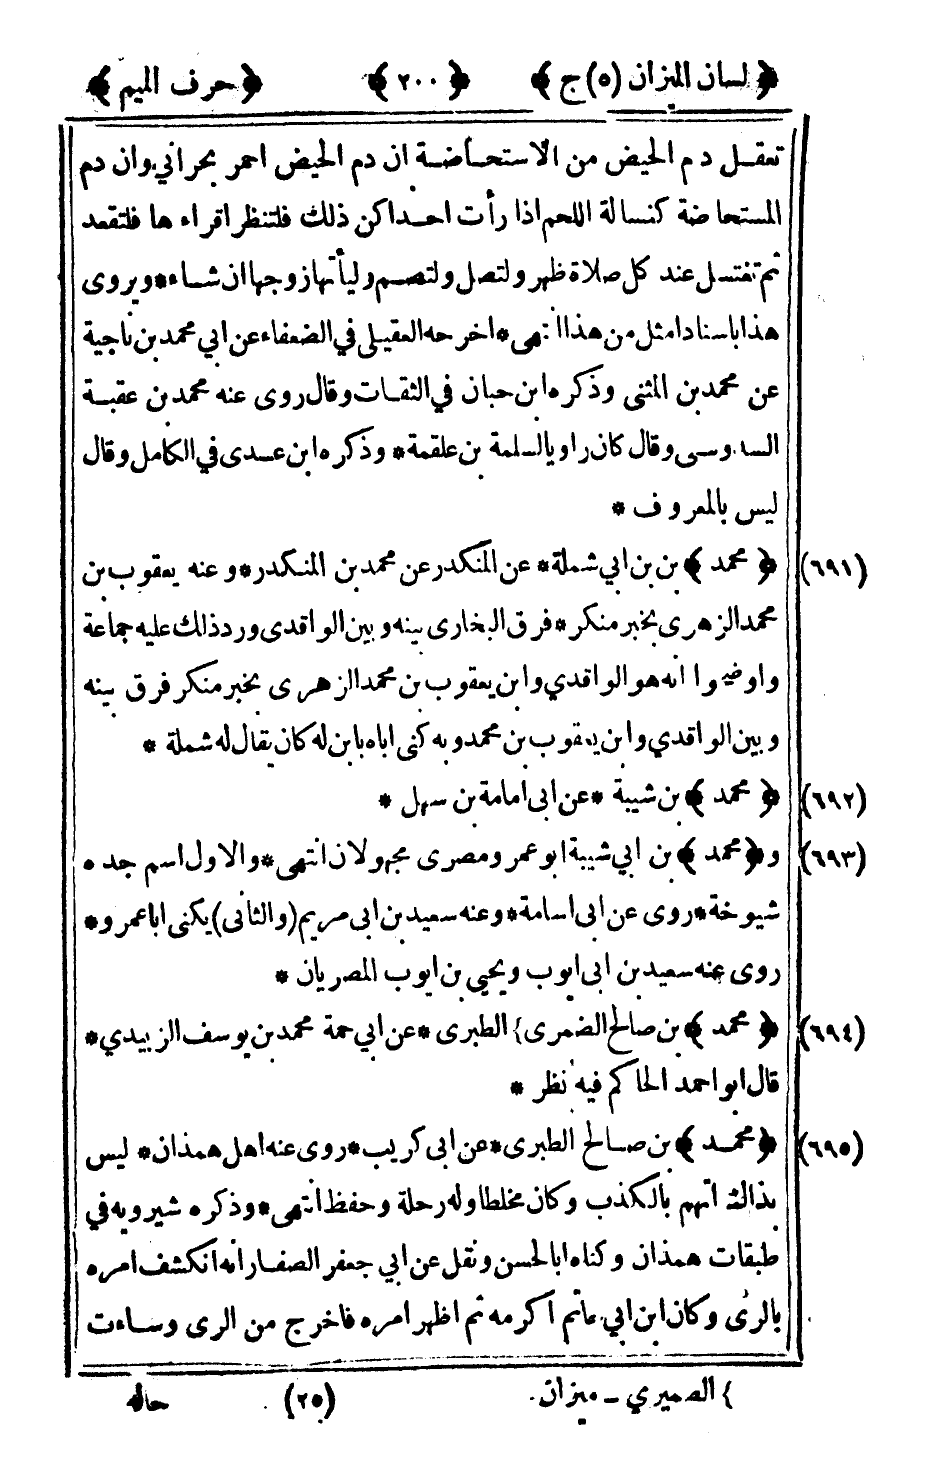 ﴿ لسان الميزان (٥) ج ﴾ ﴿ ٢٠٠ ﴾ ﴿ حرف الميم ﴾
تعقل دم الحيض من الاستحاضة ان دم الحيض احمر بحراني وان دم
المستحاضة كغسالة اللحم اذا رأت احداكن ذلك فلتنظر اقراءها فلتقعد
ثم تغتسل عند كل صلاة ظهر ولتصل ولتصم وليأتها زوجها ان شاء * ويروى
هذا باسناد امثل من هذا انتهى * اخرجه العقيلي في الضعفاء عن ابي محمد بن ناجية
عن محمد بن المثنى وذكره ابن حبان في الثقات وقال روى عنه محمد بن عقبة
السدوسى وقال كان راويا لسلمة بن علقمة * وذكره ابن عدى في الكامل وقال
ليس بالمعروف *
(٦٩١) ﴿ محمد ﴾ بن بن ابي شملة * عن المنكدر عن محمد بن المنكدر * وعنه يعقوب بن
محمد الزهرى بخبر منكر * فرق البخارى بينه وبين الواقدى ورد ذلك عليه جماعة
واوضحوا انه هو الواقدي وابن يعقوب بن محمد الزهرى بخبر منكر فرق بينه
وبين الواقدي وابن يعقوب بن محمد وبه كنى اباه بابن له كان يقال له شملة *
(٦٩٢) ﴿ محمد ﴾ بن شيبة * عن ابى امامة بن سهل *
(٦٩٣) و ﴿ محمد ﴾ بن ابي شيبة ابو عمر ومصرى مجهولان انتهى * والاول اسم جده
شيوخة * روى عن ابى اسامة * وعنه سعيد بن ابى مريم (والثانى) يكنى ابا عمرو *
روى عنه سعيد بن ابى ايوب ويحيى بن ايوب المصريان *
(٦٩٤) ﴿ محمد ﴾ بن صالح الضمرى } الطبرى * عن ابي حمة محمد بن يوسف الزبيدي *
قال ابو احمد الحاكم فيه نظر *
(٦٩٥) ﴿ محمد ﴾ بن صالح الطبرى * عن ابى كريب * روى عنه اهل همذان * ليس
بذالك اتهم بالكذب وكان مخلطا وله رحلة وحفظ انتهى * وذكره شيرويه في
طبقات همذان وكناه ابا الحسن ونقل عن ابي جعفر الصفار انه انكشف امره
بالرى وكان ابن ابي حاتم اكرمه ثم اظهر امره فاخرج من الرى وساءت
} الصميري ـ ميزان. (٢٥) حاله